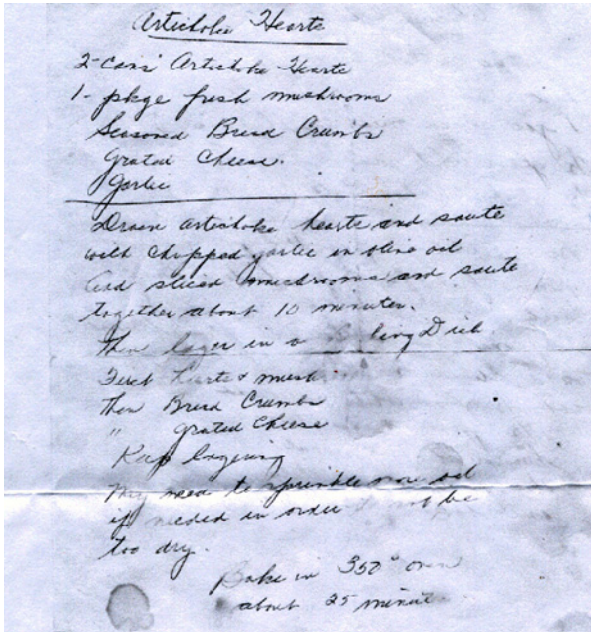 Artichoke Hearts
2-cans Artichoke Hearts
1- pkge fresh mushrooms
Seasoned Bread Crumbs
Grated Cheese.
Garlic
Drain artichoke hearts and saute
with chopped garlic in olive oil
Add sliced mushrooms and saute
together about 10 minutes.
Then layer in a Dish
First hearts & mush
Then Bread Crumbs
" Grated Cheese
Keep layering
May need to sprinkle more oil
if needed in order not be
too dry.
Bake in 350° oven
about 25 minutes